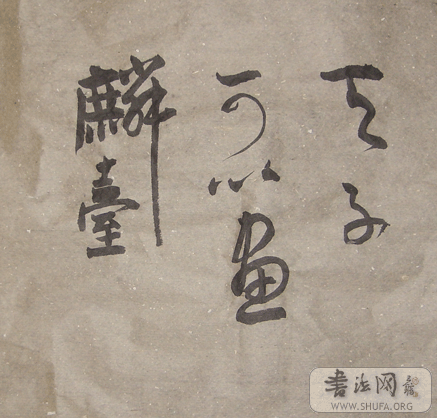 天子
可以畫
麟臺
书法网
WWW.SHUFA.ORG